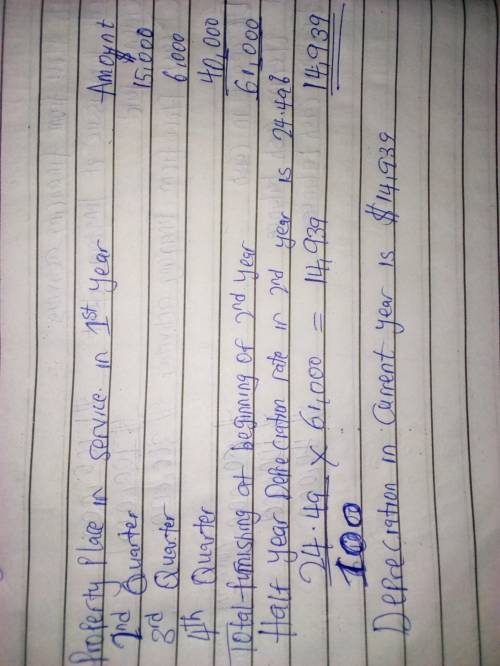 Property Place in service in 1st year Amount
$
2nd Quarter 15,000
3rd Quarter 6,000
4th Quarter 40,000
Total furnishing at beginning of 2nd year 61,000
Half year Depreciation rate in 2nd year is 24.49%
24.49 × 61,000 = 14,939 14,939
100
Depreciation in current year is $14,939